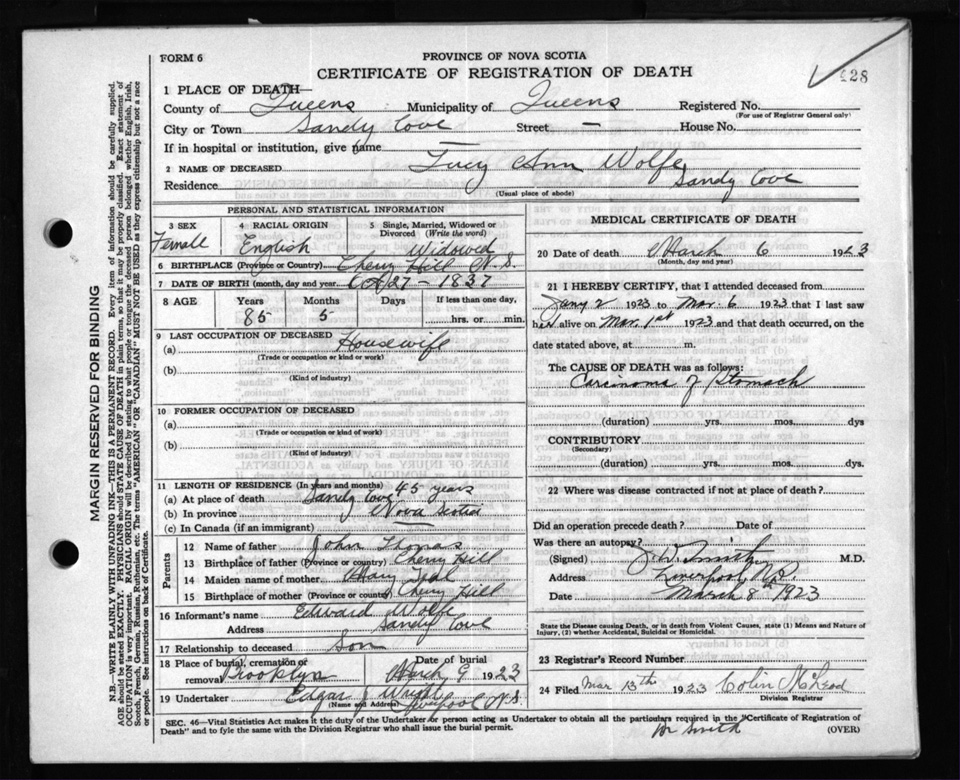 FORM 6
PROVINCE OF NOVA SCOTIA
CERTIFICATE OF REGISTRATION OF DEATH
428
1 PLACE OF DEATH—
County of Queens Municipality of Queens Registered No.
(For use of Registrar General only)
City or Town Sandy Cove Street — House No.
If in hospital or institution, give name —
2 NAME OF DECEASED Lucy Ann Wolfe
Residence Sandy Cove
(Usual place of abode)
PERSONAL AND STATISTICAL INFORMATION
3 SEX 4 RACIAL ORIGIN 5 Single, Married, Widowed or Divorced (Write the word)
Female English Widowed
6 BIRTHPLACE (Province or Country) Cherry Hill N.S.
7 DATE OF BIRTH (month, day and year) 27 – 1837
8 AGE Years Months Days If less than one day,
85 5 hrs. or min.
9 LAST OCCUPATION OF DECEASED
(a) Housewife
(Trade or occupation or kind or work)
(b)
(Kind of industry)
10 FORMER OCCUPATION OF DECEASED
(a)
(Trade or occupation or kind of work)
(b)
(Kind of industry)
11 LENGTH OF RESIDENCE (In years and months)
(a) At place of death Sandy Cove 45 years
(b) In province Nova Scotia
(c) In Canada (if an immigrant) —
Parents
12 Name of father John Thomas
13 Birthplace of father (Province or country) Cherry Hill
14 Maiden name of mother Mary
15 Birthplace of mother (Province or country) Cherry Hill
16 Informant's name Edward Wolfe
Address Sandy Cove
17 Relationship to deceased Son
18 Place of burial, cremation or removal Brooklyn Date of burial March 9 1923
19 Undertaker Edgar J Wright
(Name and Address) Liverpool N.S.
MEDICAL CERTIFICATE OF DEATH
20 Date of death March 6 1923
(Month, day and year)
21 I HEREBY CERTIFY, that I attended deceased from
Jany 2 1923 to Mar. 6 1923 that I last saw
her alive on Mar. 1st 1923 and that death occurred, on the
date stated above, at m.
The CAUSE OF DEATH was as follows:
Carcinoma of Stomach
(duration) yrs. mos. dys
CONTRIBUTORY
(Secondary)
(duration) yrs. mos. dys.
22 Where was disease contracted if not at place of death?
Did an operation precede death? Date of
Was there an autopsy?
(Signed) J. W. Smith M.D.
Address Liverpool, N.S.
Date March 8th 1923
State the disease causing Death, or in death from Violent Causes, state (1) Means and Nature of
Injury, (2) whether Accidental, Suicidal or Homicidal.
23 Registrar's Record Number
24 Filed Mar 13th 1923 Colin McLeod
Division Registrar
SEC. 46—Vital Statistics Act makes it the duty of the Undertaker or person acting as Undertaker to obtain all the particulars required in the "Certificate of Registration of
Death" and to fyle the same with the Division Registrar who shall issue the burial permit.
Dr Smith
(OVER)
MARGIN RESERVED FOR BINDING
N.B.—WRITE PLAINLY WITH UNFADING INK—THIS IS A PERMANENT RECORD. Every item of information should be carefully supplied.
AGE should be stated EXACTLY. PHYSICIANS should STATE CAUSE OF DEATH in plain terms, so that it may be properly classified. Exact statement of
OCCUPATION is very important. RACIAL ORIGIN will be described by stating to what people or tongue the deceased person belonged whether English, Irish,
Scotch, French, German, Russian, Ruthenian, etc. The terms "AMERICAN" OR "CANADIAN" MUST NOT BE USED as they express citizenship but not a race
or people. See instructions on back of Certificate.